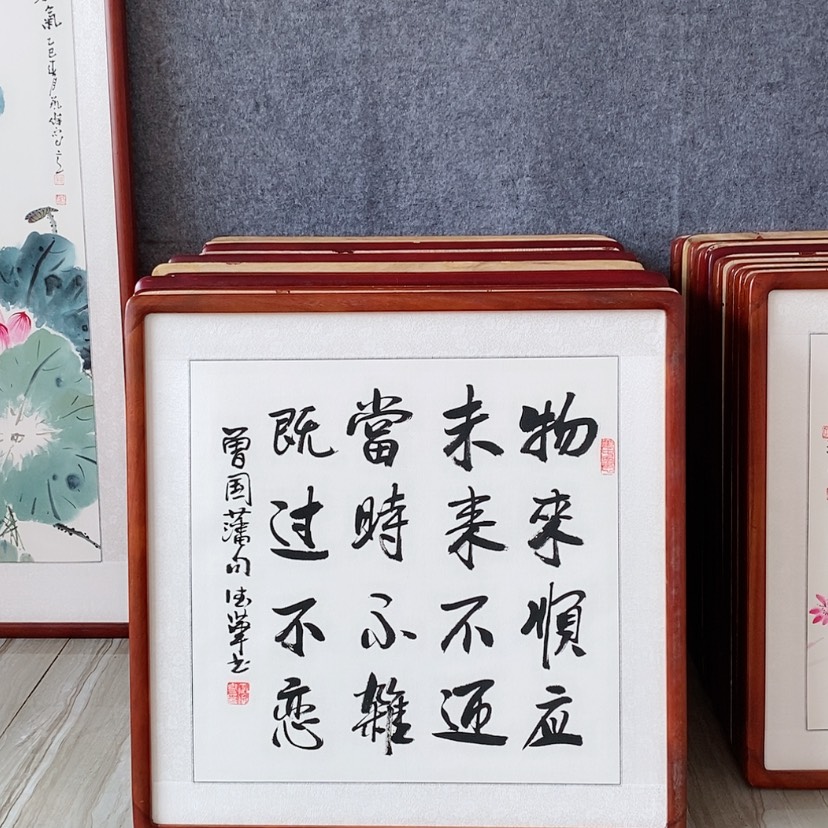 物來順应
未来不迎
當時不雜
既过不恋
曾国藩句 德荣书